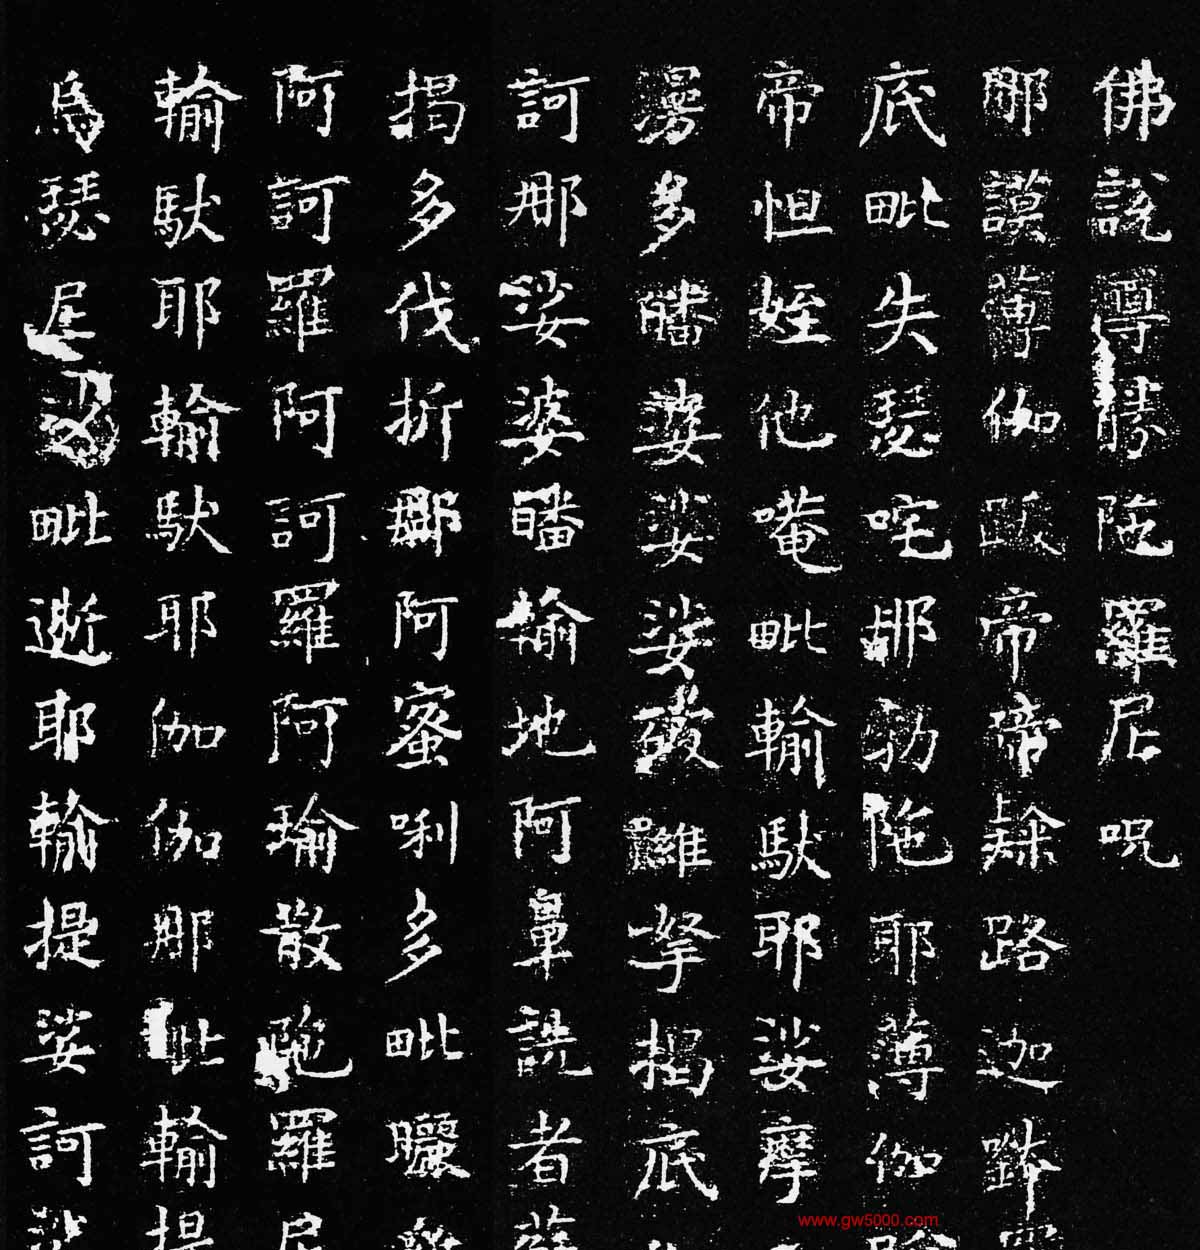 佛說尊勝陁羅尼呪
那謨薄伽跋帝帝隸路迦
底毗失瑟咤耶勃陁耶薄伽
帝怛姪他唵毗輸馱耶娑摩
漫多皤婆娑娑破羅拏揭底
訶那娑婆皤輸地阿鼻詵者
揭多伐折那阿蜜唎多毗曬
阿訶羅阿訶羅阿瑜散陁羅尼
輸馱耶輸馱耶伽伽那毗輸提
烏瑟尼沙毗逝耶輸提娑訶
www.gw5000.com